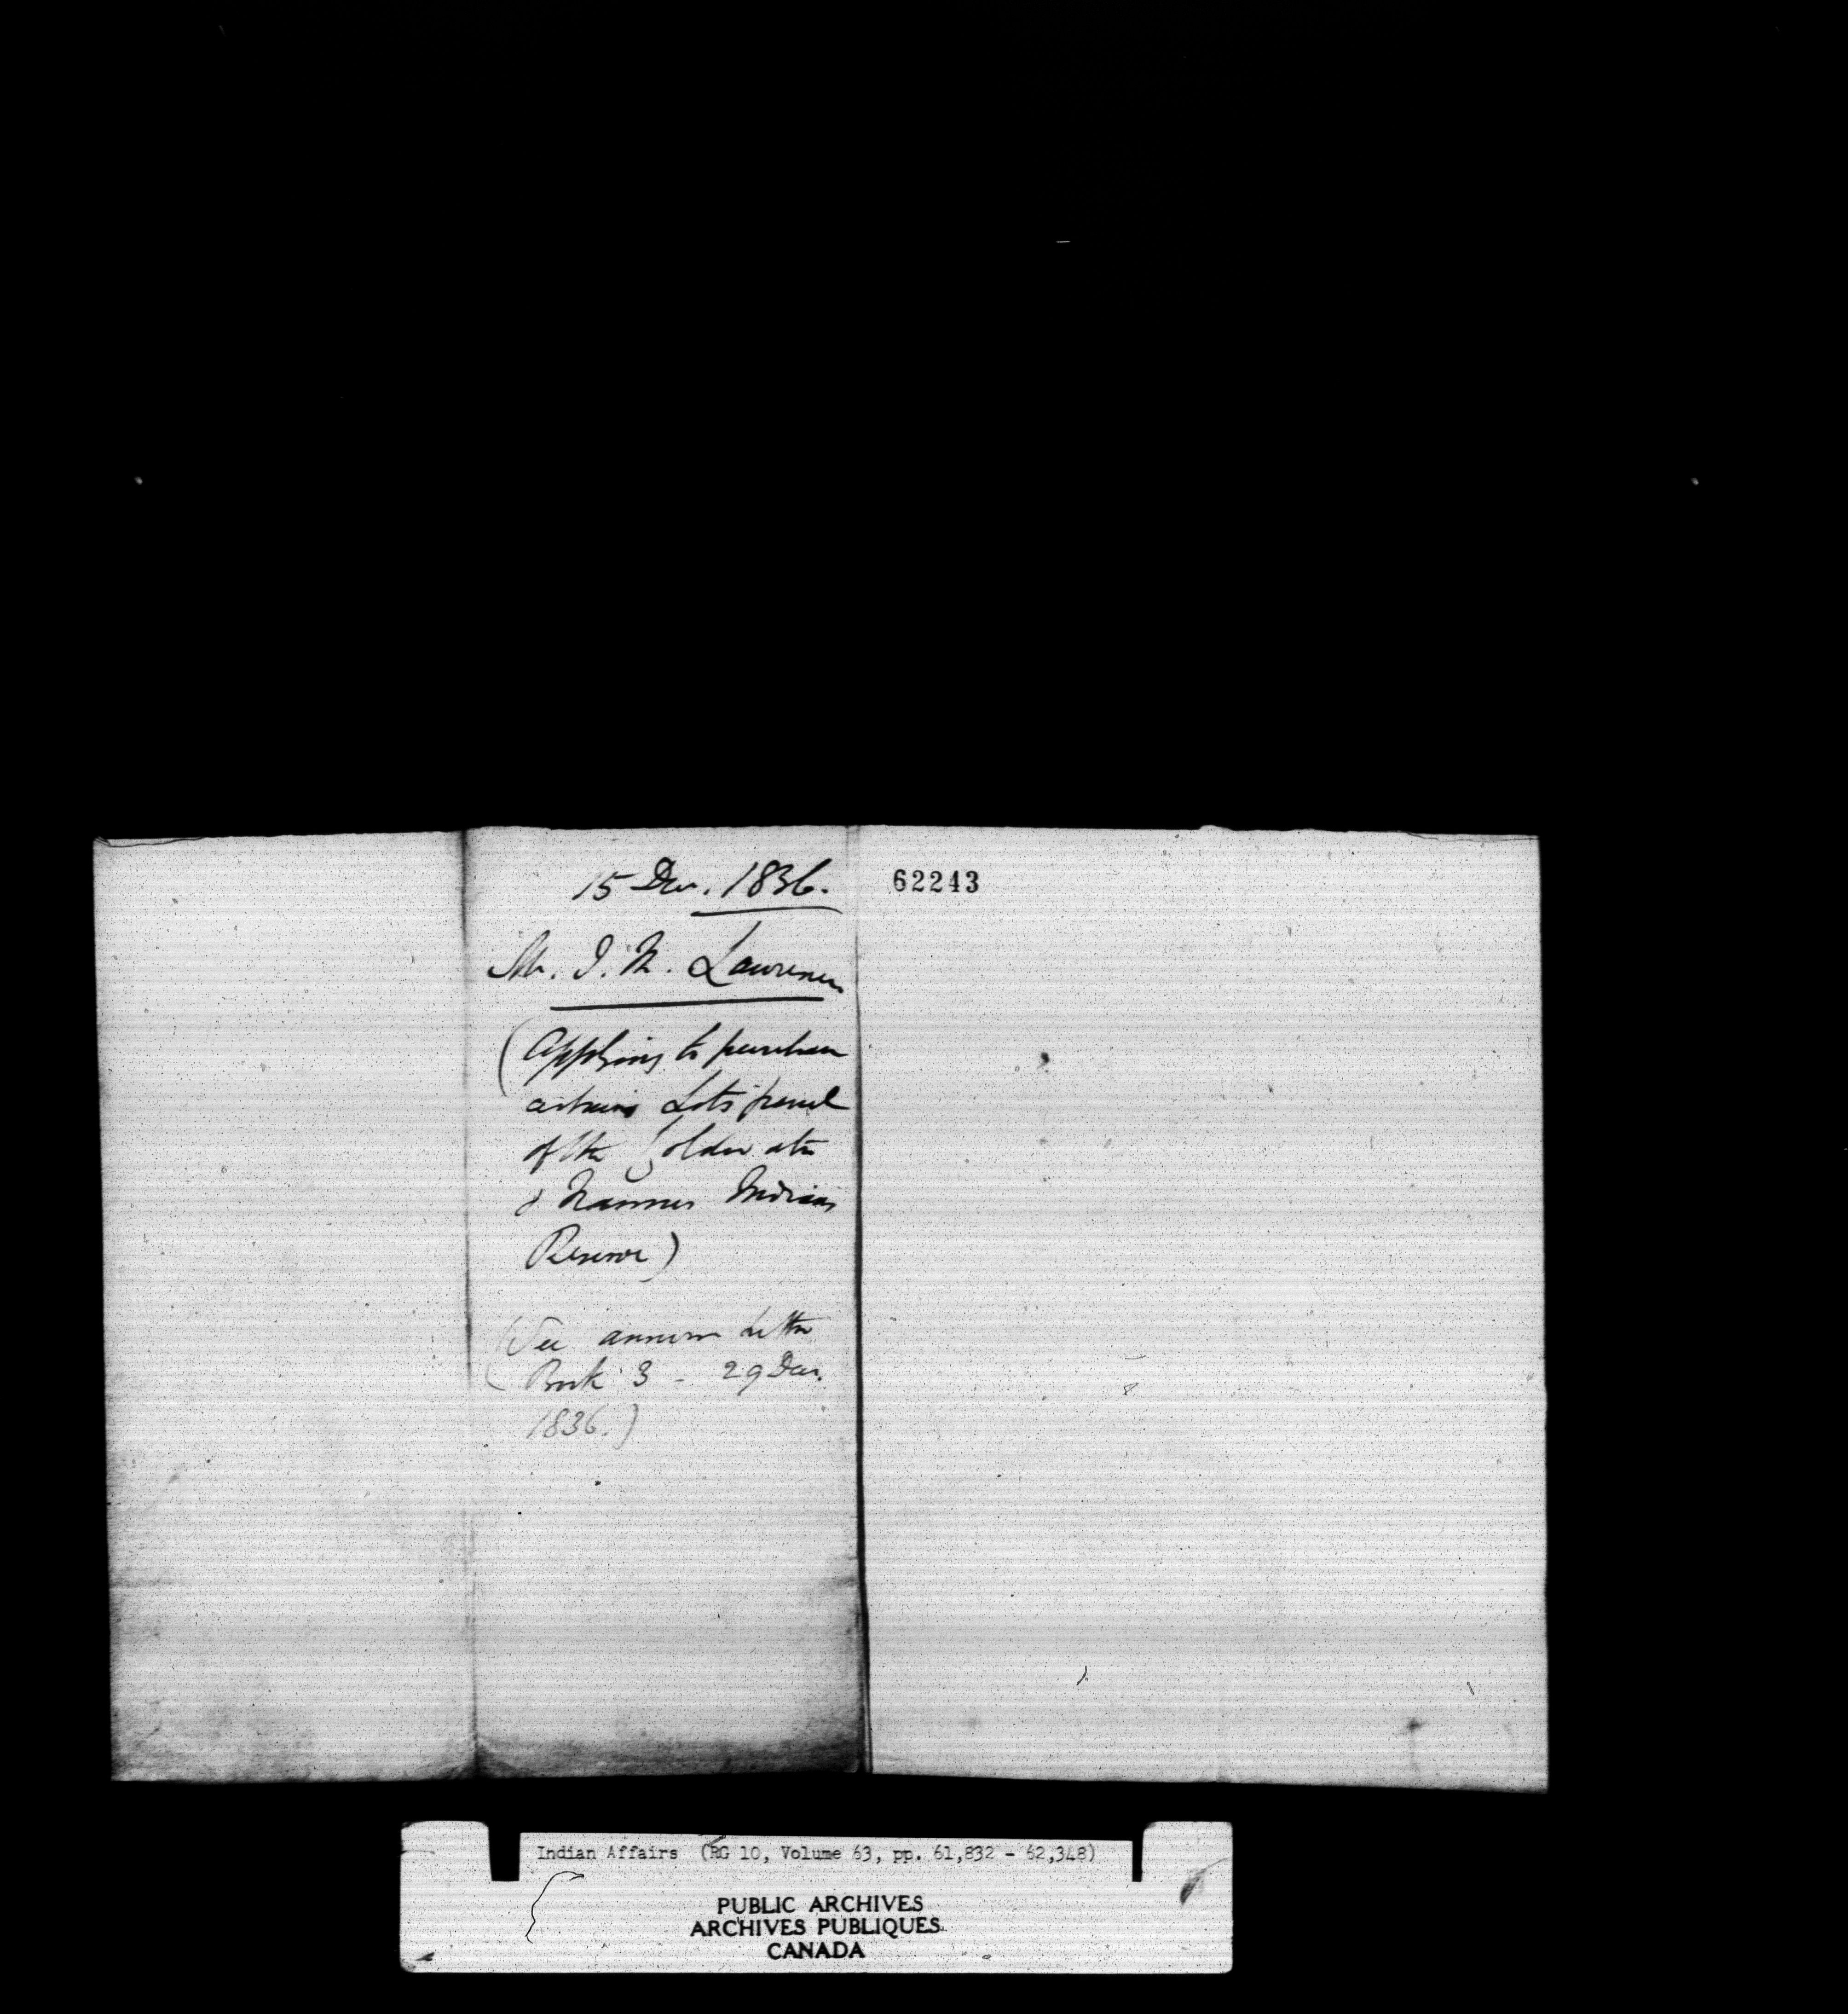 15 Decr. 1836.
62243
Mr. J. M. Lawrence
(Applying to purchase
certain Lots
of the Coldwater
& Narrows Indian
Reserve)
(See answer Letter
Book 3 - 29 Decr.
1836.)
Indian Affairs (RG 10, Volume 63, pp. 61,832 - 62,348)
PUBLIC ARCHIVES
ARCHIVES PUBLIQUES
CANADA